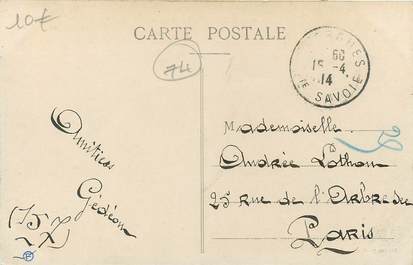 10€
CARTE POSTALE
74
15-4.
14
SAVOIE
Amitiés
Gédéon
Mademoiselle
Andrée
25 rue de l'Arbre sec
Paris